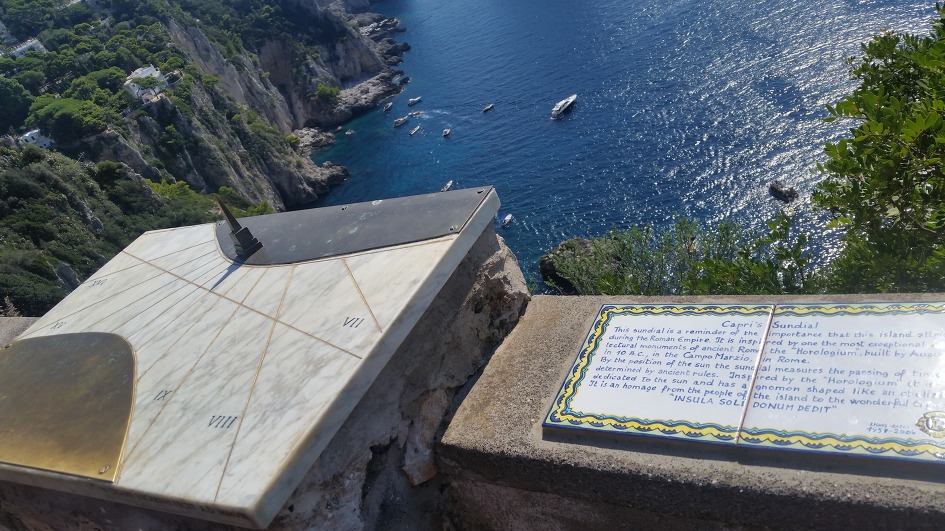 XVI
XV
IX
VIII
VII
Capri's Sundial
This sundial is a reminder of the importance that this island
during the Roman Empire. It is inspired by one the most exceptional
tectural monuments of ancient Rome, the "Horologium", built by
in 10 A.C., in the Campo Marzio, in Rome.
By the position of the sun the sundial measures the passing of
determined by ancient rules. Inspired by the "Horologium",
dedicated to the sun and has a gnomon shaped like an
It is an homage from the people of the island to the wonderful
"INSULA SOLI DONUM DEDIT"